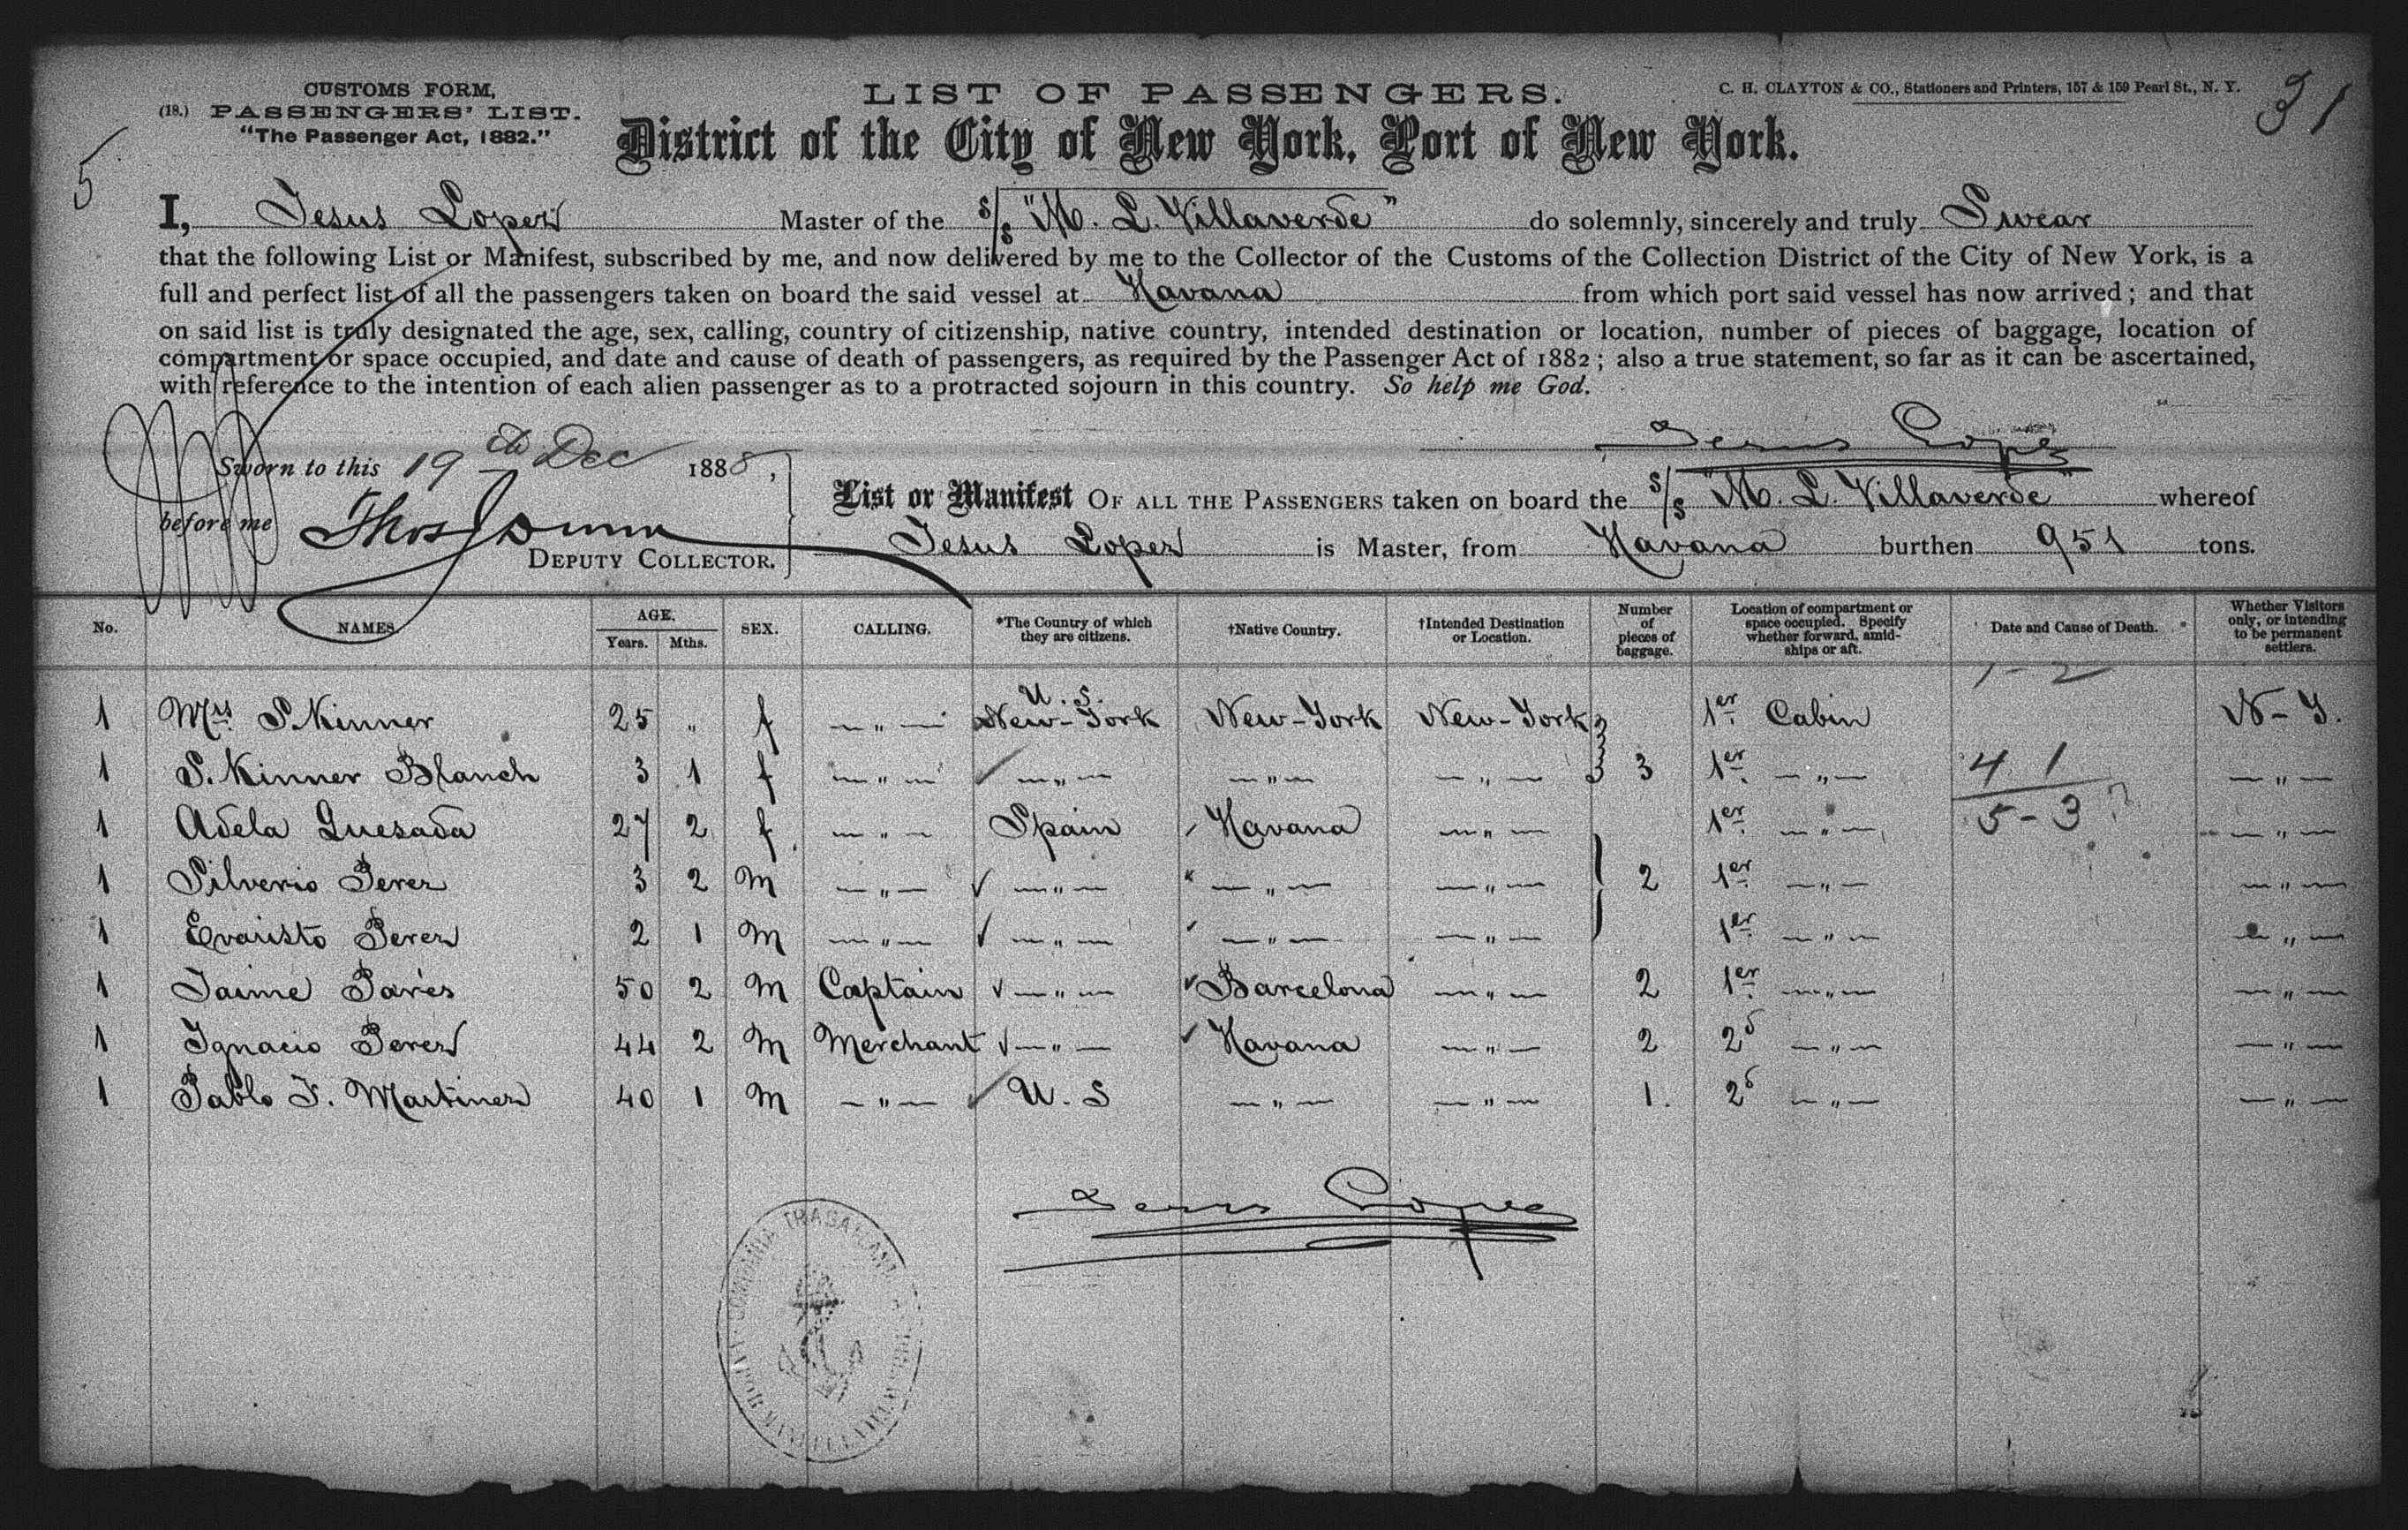 CUSTOMS FORM,
(18.) PASSENGERS' LIST.
"The Passenger Act, 1882."
LIST OF PASSENGERS.
C. H. CLAYTON & CO., Stationers and Printers, 157 & 159 Pearl St., N. Y.
31
5
District of the City of New York, Port of New York.
I, Jesus Lopez Master of the S/S "M. L. Villaverde" do solemnly, sincerely and truly Swear
that the following List or Manifest, subscribed by me, and now delivered by me to the Collector of the Customs of the Collection District of the City of New York, is a
full and perfect list of all the passengers taken on board the said vessel at Havana from which port said vessel has now arrived; and that
on said list is truly designated the age, sex, calling, country of citizenship, native country, intended destination or location, number of pieces of baggage, location of
compartment or space occupied, and date and cause of death of passengers, as required by the Passenger Act of 1882; also a true statement, so far as it can be ascertained,
with reference to the intention of each alien passenger as to a protracted sojourn in this country. So help me God.
Jesus Lopez
Sworn to this 19th Dec 1888,
before me Thos J Dunn
DEPUTY COLLECTOR.
List or Manifest OF ALL THE PASSENGERS taken on board the S/S "M. L. Villaverde" whereof
Jesus Lopez is Master, from Havana burthen 951 tons.
No. NAMES. AGE. Years. Mths. SEX. CALLING. *The Country of which they are citizens. †Native Country. †Intended Destination or Location. Number of pieces of baggage. Location of compartment or space occupied. Specify whether forward, amidships or aft. Date and Cause of Death. Whether Visitors only, or intending to be permanent settlers.
1 - 2
1 Mrs S. Kinner 25 " f — " — U. S. New-York New-York New-York 1er Cabin N-Y.
1 S. Kinner Blanch 3 1 f — " — — " — — " — — " — 3 1er — " — 4 1 — " —
1 Adela Quesada 27 2 f — " — Spain Havana — " — 1er — " — 5 - 3 — " —
1 Silverio Perez 3 2 M — " — — " — — " — — " — 2 1er — " — — " —
1 Evaristo Perez 2 1 M — " — — " — — " — — " — 1er — " — — " —
1 Jaime Parés 50 2 M Captain — " — Barcelona — " — 2 1er — " — — " —
1 Ignacio Perez 44 2 M Merchant — " — Havana — " — 2 2d — " — — " —
1 Pablo F. Martinez 40 1 M — " — U. S — " — — " — 1. 2d — " — — " —
Jesus Lopez
COMPAÑIA TRASATLANTICA
VAPOR M. L. VILLAVERDE